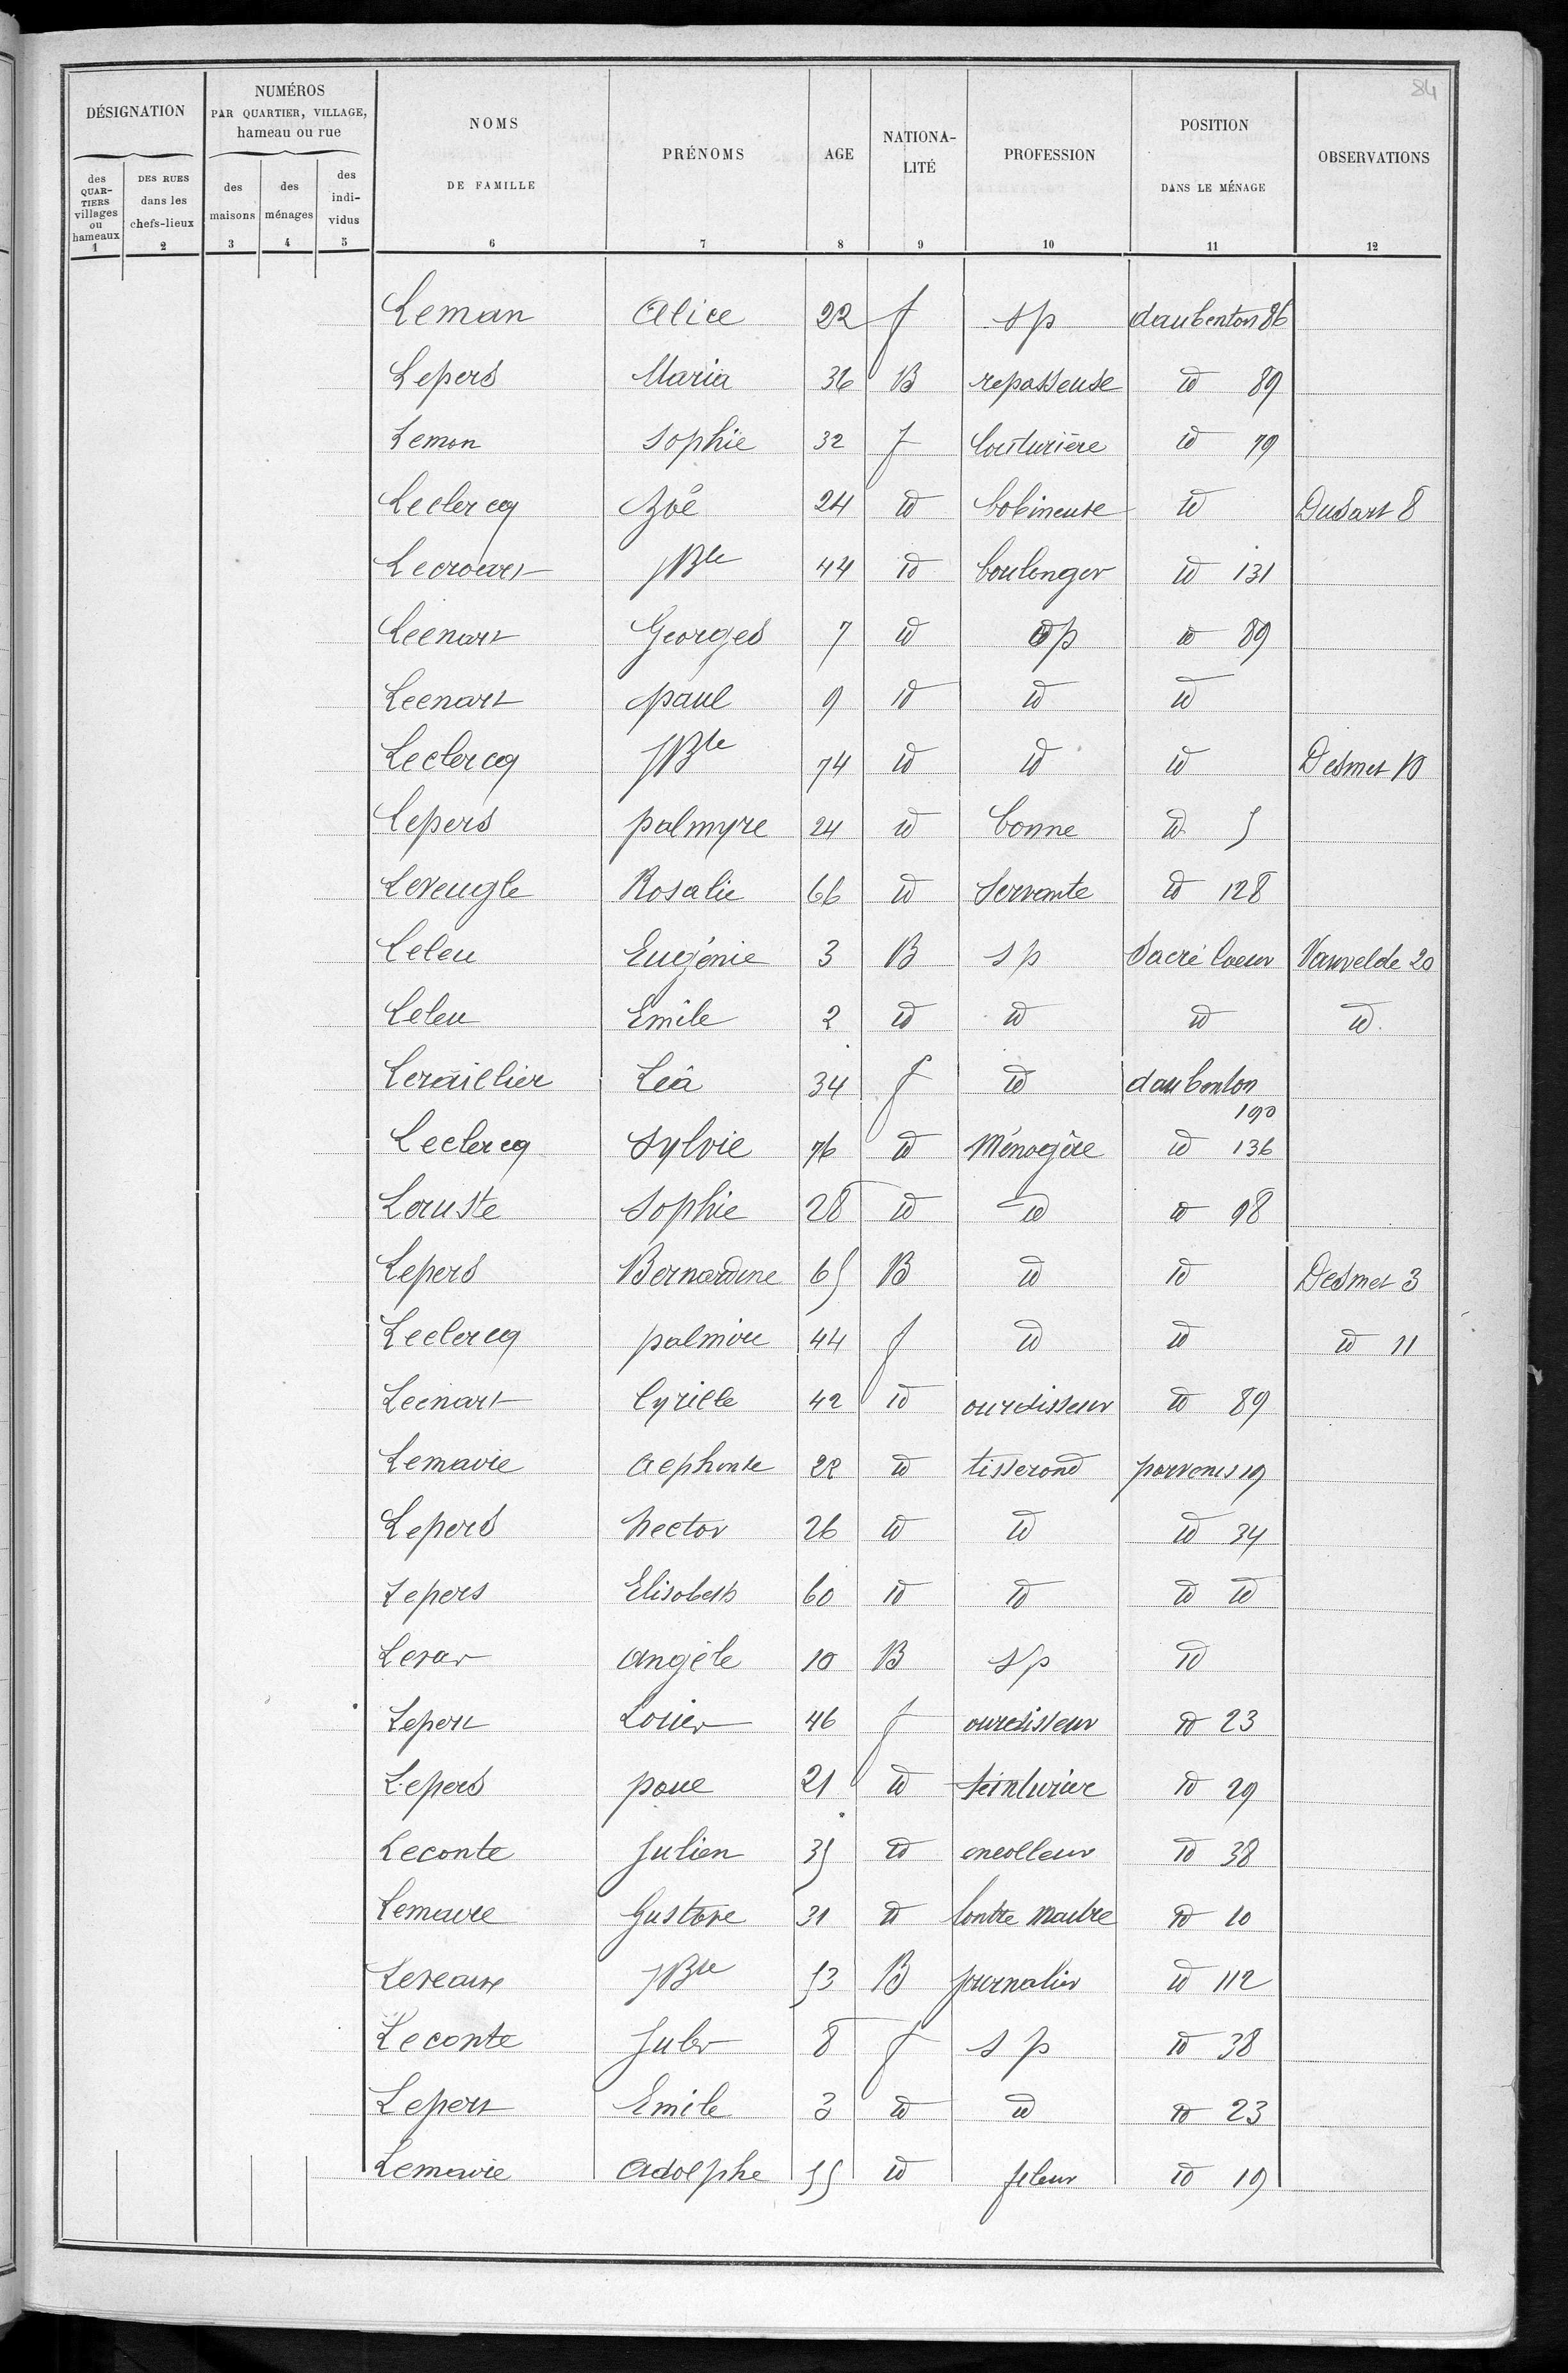 84
DÉSIGNATION
NUMÉROS
PAR QUARTIER, VILLAGE,
hameau ou rue
NOMS
DE FAMILLE
PRÉNOMS
AGE
NATIONA-
LITÉ
PROFESSION
POSITION
DANS LE MÉNAGE
OBSERVATIONS
des
QUAR-
TIERS
villages
ou
hameaux
DES RUES
dans les
chefs-lieux
des
maisons
des
ménages
des
indi-
vidus
1 2 3 4 5 6 7 8 9 10 11 12
Leman Alice 22 f sp daubenton 86
Lepers Maria 36 B repasseuse id 89
Lemon Sophie 32 f Couturière id 79
Leclercq Zoé 24 id bobineuse id Dusart 8
JBte 44 id boulenger id 131
Leenart Georges 7 id sp id 89
Leenart paul 9 id id id
Leclercq JBte 74 id id id Desmet 10
Lepers palmyre 24 id bonne id 5
Leveugle Rosalie 66 id Servante id 128
Leleu Eugénie 3 B sp Sacré Coeur Vanvelde 20
Leleu Emile 2 id id id id
Léa 34 f id daubenton
190
Leclercq Sylvie 76 id Ménagère id 136
Sophie 28 id id id 98
Lepers Bernardine 65 B id id Desmet 3
Leclercq palmire 44 f id id id 11
Leenart Cyrille 42 id ourdisseur id 89
Lemaire Alphonse 22 id tisserand parvenis 19
Lepers hector 26 id id id 34
Lepers Elisabeth 60 id id id id
angèle 10 B sp id
Lepers Louis 46 f ourdisseur id 23
Lepers paul 21 id teinturier id 29
Leconte Julien 35 id encolleur id 38
Lemaire Gustave 31 id Contre Maitre id 10
JBte 53 B journalier id 112
Leconte Jules 8 f sp id 38
Lepers Emile 3 id id id 23
Lemaire Adolphe 55 id fileur id 19